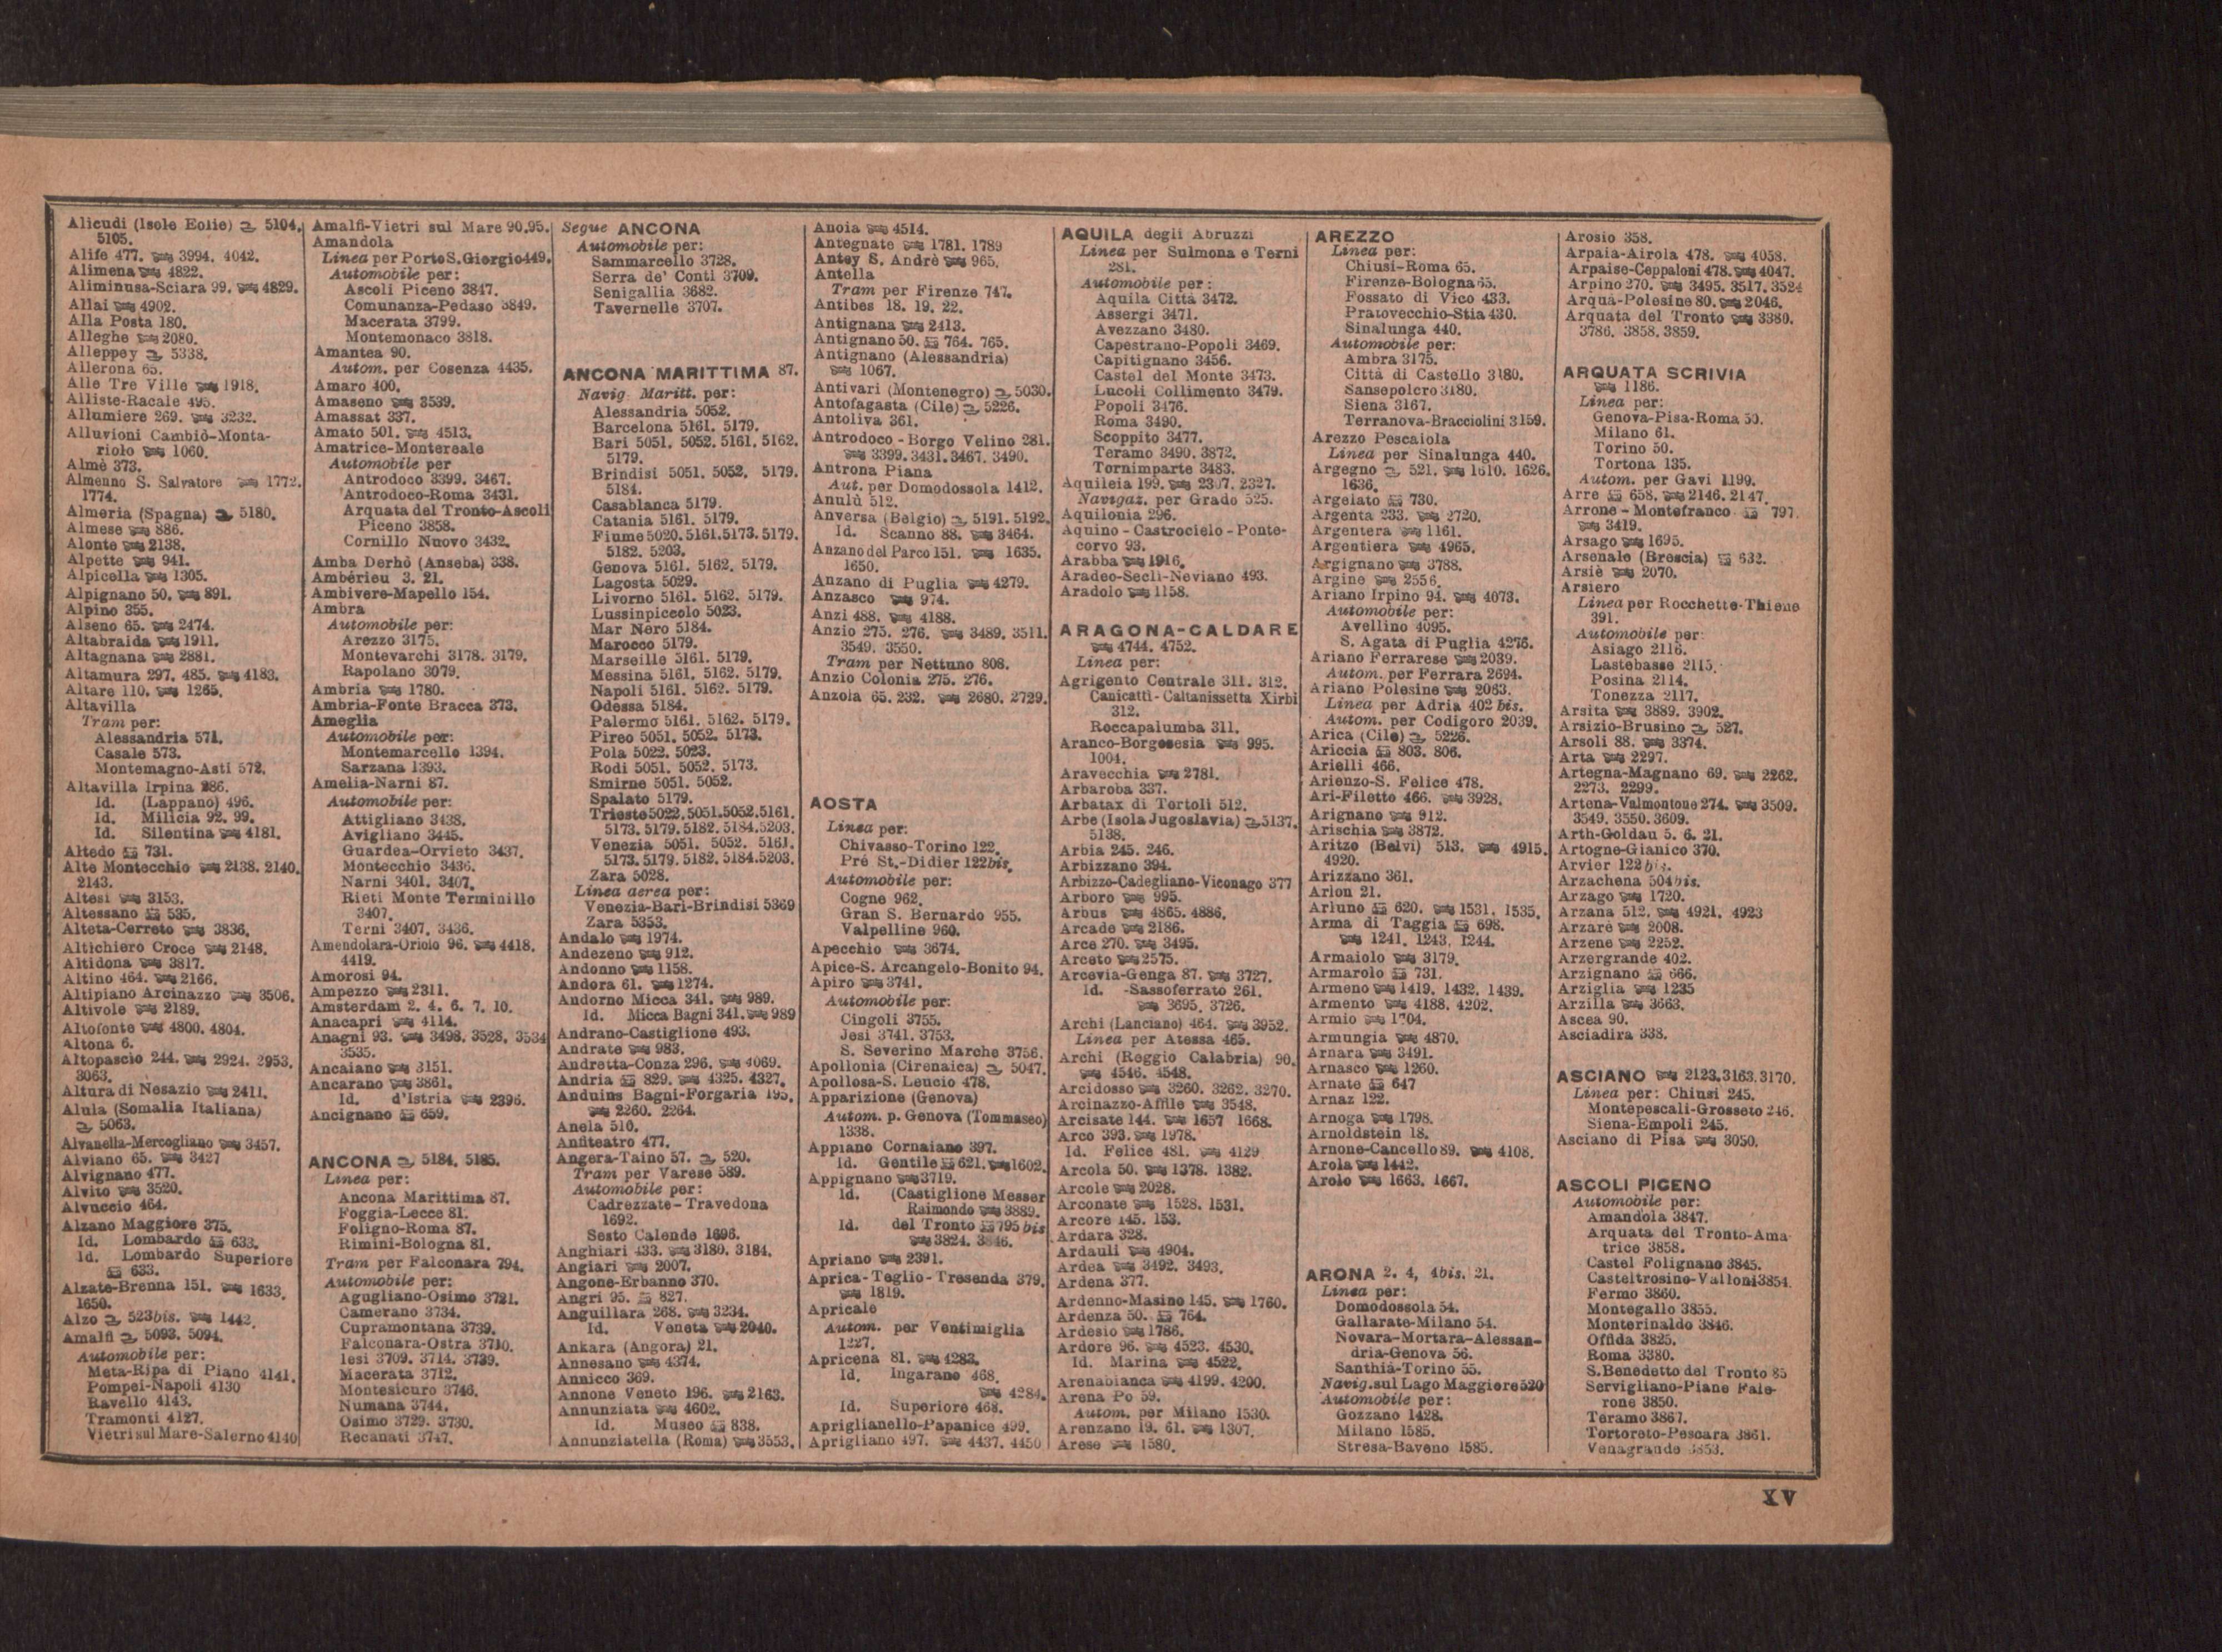 Alicudi (Isole Eolie) 5104.
5105.
Alife 477. 3994. 4042.
Alimena 4822.
Aliminusa-Sciara 99. 4829.
Allai 4902.
Alla Posta 180.
Alleghe 2080.
Alleppey 5338.
Allerona 65.
Alle Tre Ville 1918.
Alliste-Racale 495.
Allumiere 269. 3232.
Alluvioni Cambiò-Monta-
riolo 1060.
Almè 373.
Almenno S. Salvatore 1772.
1774.
Almeria (Spagna) 5180.
Almese 886.
Alonte 2138.
Alpette 941.
Alpicella 1305.
Alpignano 50. 891.
Alpino 355.
Alseno 65. 2474.
Altabraida 1911.
Altagnana 2881.
Altamura 297. 485. 4183.
Altare 110. 1265.
Altavilla
Tram per:
Alessandria 571.
Casale 573.
Montemagno-Asti 572.
Altavilla Irpina 286.
Id. (Lappano) 496.
Id. Milicia 92. 99.
Id. Silentina 4181.
Altedo 731.
Alte Montecchio 2138. 2140.
2143.
Altesi 3153.
Altessano 535.
Alteta-Cerreto 3836.
Altichiero Croce 2148.
Altidona 3817.
Altino 464. 2166.
Altipiano Arcinazzo 3506.
Altivole 2189.
Altofonte 4800. 4804.
Altona 6.
Altopascio 244. 2924. 2953.
3063.
Altura di Nesazio 2411.
Alula (Somalia Italiana)
5063.
Alvanella-Mercogliano 3457.
Alviano 65. 3427
Alvignano 477.
Alvito 3520.
Alvuccio 464.
Alzano Maggiore 375.
Id. Lombardo 633.
Id. Lombardo Superiore
633.
Alzate-Brenna 151. 1633.
1650.
Alzo 523bis. 1442.
Amalfi 5093. 5094.
Automobile per:
Meta-Ripa di Piano 4141.
Pompei-Napoli 4130
Ravello 4143.
Tramonti 4127.
Vietri sul Mare-Salerno 4140
Amalfi-Vietri sul Mare 90.95.
Amandola
Linea per Porto S. Giorgio 449.
Automobile per:
Ascoli Piceno 3847.
Comunanza-Pedaso 3849.
Macerata 3799.
Montemonaco 3818.
Amantea 90.
Autom. per Cosenza 4435.
Amaro 400.
Amaseno 3539.
Amassat 337.
Amato 501. 4513.
Amatrice-Montereale
Automobile per
Antrodoco 3399. 3467.
Antrodoco-Roma 3431.
Arquata del Tronto-Ascoli
Piceno 3858.
Cornillo Nuovo 3432.
Amba Derhò (Anseba) 338.
Ambérieu 3. 21.
Ambivere-Mapello 154.
Ambra
Automobile per:
Arezzo 3175.
Montevarchi 3178. 3179.
Rapolano 3079.
Ambria 1780.
Ambria-Fonte Bracca 373.
Ameglia
Automobile per:
Montemarcello 1394.
Sarzana 1393.
Amelia-Narni 87.
Automobile per:
Attigliano 3438.
Avigliano 3445.
Guardea-Orvieto 3437.
Montecchio 3436.
Narni 3401. 3407.
Rieti Monte Terminillo
3407.
Terni 3407. 3436.
Amendolara-Oriolo 96. 4418.
4419.
Amorosi 94.
Ampezzo 2311.
Amsterdam 2. 4. 6. 7. 10.
Anacapri 4114.
Anagni 93. 3498. 3528. 3534
3535.
Ancaiano 3151.
Ancarano 3861.
Id. d'Istria 2396.
Ancignano 659.
ANCONA 5184. 5185.
Linea per:
Ancona Marittima 87.
Foggia-Lecce 81.
Foligno-Roma 87.
Rimini-Bologna 81.
Tram per Falconara 794.
Automobile per:
Agugliano-Osimo 3731.
Camerano 3734.
Cupramontana 3739.
Falconara-Ostra 3710.
Iesi 3709. 3714. 3739.
Macerata 3712.
Montesicuro 3746.
Numana 3744.
Osimo 3729. 3730.
Recanati 3747.
Segue ANCONA
Automobile per:
Sammarcello 3728.
Serra de' Conti 3709.
Senigallia 3682.
Tavernelle 3707.
ANCONA MARITTIMA 87.
Navig. Maritt. per:
Alessandria 5052.
Barcelona 5161. 5179.
Bari 5051. 5052. 5161. 5162.
5179.
Brindisi 5051. 5052. 5179.
5184.
Casablanca 5179.
Catania 5161. 5179.
Fiume 5020.5161.5173.5179.
5182. 5203.
Genova 5161. 5162. 5179.
Lagosta 5029.
Livorno 5161. 5162. 5179.
Lussinpiccolo 5023.
Mar Nero 5184.
Marocco 5179.
Marseille 5161. 5179.
Messina 5161. 5162. 5179.
Napoli 5161. 5162. 5179.
Odessa 5184.
Palermo 5161. 5162. 5179.
Pireo 5051. 5052. 5173.
Pola 5022. 5023.
Rodi 5051. 5052. 5173.
Smirne 5051. 5052.
Spalato 5179.
Trieste 5022.5051.5052.5161.
5173. 5179. 5182. 5184.5203.
Venezia 5051. 5052. 5161.
5173. 5179. 5182. 5184.5203.
Zara 5028.
Linea aerea per:
Venezia-Bari-Brindisi 5369
Zara 5353.
Andalo 1974.
Andezeno 912.
Andonno 1158.
Andora 61. 1274.
Andorno Micca 341. 989.
Id. Micca Bagni 341. 989
Andrano-Castiglione 493.
Andrate 983.
Andretta-Conza 296. 4069.
Andria 829. 4325. 4327.
Anduins Bagni-Forgaria 195.
2260. 2264.
Anela 510.
Anfiteatro 477.
Angera-Taino 57. 520.
Tram per Varese 589.
Automobile per:
Cadrezzate-Travedona
1692.
Sesto Calende 1696.
Anghiari 433. 3180. 3184.
Angiari 2007.
Angone-Erbanno 370.
Angri 95. 827.
Anguillara 268. 3234.
Id. Veneta 2040.
Ankara (Angora) 21.
Annesano 4374.
Annicco 369.
Annone Veneto 196. 2163.
Annunziata 4602.
Id. Museo 838.
Annunziatella (Roma) 3553.
Anoia 4514.
Antegnate 1781. 1789
Antey S. Andrè 965.
Antella
Tram per Firenze 747.
Antibes 18. 19. 22.
Antignana 2413.
Antignano 50. 764. 765.
Antignano (Alessandria)
1067.
Antivari (Montenegro) 5030.
Antofagasta (Cile) 5226.
Antoliva 361.
Antrodoco - Borgo Velino 281.
3399. 3431. 3467. 3490.
Antrona Piana
Aut. per Domodossola 1412.
Anulù 512.
Anversa (Belgio) 5191. 5192.
Id. Scanno 88. 3464.
Anzano del Parco 151. 1635.
1650.
Anzano di Puglia 4279.
Anzasco 974.
Anzi 488. 4188.
Anzio 275. 276. 3489. 3511.
3549. 3550.
Tram per Nettuno 808.
Anzio Colonia 275. 276.
Anzola 65. 232. 2680. 2729.
AOSTA
Linea per:
Chivasso-Torino 122.
Pré St.-Didier 122bis.
Automobile per:
Cogne 962.
Gran S. Bernardo 955.
Valpelline 960.
Apecchio 3674.
Apice-S. Arcangelo-Bonito 94.
Apiro 3741.
Automobile per:
Cingoli 3755.
Jesi 3741. 3753.
S. Severino Marche 3756.
Apollonia (Cirenaica) 5047.
Apollosa-S. Leucio 478.
Apparizione (Genova)
Autom. p. Genova (Tommaseo)
1338.
Appiano Cornaiano 397.
Id. Gentile 621. 1602.
Appignano 3719.
Id. (Castiglione Messer
Raimondo 3889.
Id. del Tronto 795 bis
3824.
Apriano 2391.
Aprica-Teglio-Tresenda 379.
1819.
Apricale
Autom. per Ventimiglia
1227.
Apricena 81. 4283.
Id. Ingarano 468.
4284.
Id. Superiore 468.
Apriglianello-Papanice 499.
Aprigliano 497. 4437. 4450
AQUILA degli Abruzzi
Linea per Sulmona e Terni
281.
Automobile per:
Aquila Città 3472.
Assergi 3471.
Avezzano 3480.
Capestrano-Popoli 3469.
Capitignano 3456.
Castel del Monte 3473.
Lucoli Collimento 3479.
Popoli 3476.
Roma 3490.
Scoppito 3477.
Teramo 3490. 3872.
Tornimparte 3483.
Aquileia 199. 2307. 2327.
Navigaz. per Grado 525.
Aquilonia 296.
Aquino - Castrocielo - Ponte-
corvo 93.
Arabba 1916.
Aradeo-Seclì-Neviano 493.
Aradolo 1158.
ARAGONA-CALDARE
4744. 4752.
Linea per:
Agrigento Centrale 311. 312.
Canicattì-Caltanissetta Xirbi
312.
Roccapalumba 311.
Aranco-Borgosesia 995.
1004.
Aravecchia 2781.
Arbaroba 337.
Arbatax di Tortoli 512.
Arbe (Isola Jugoslavia) 5137.
5138.
Arbia 245. 246.
Arbizzano 394.
Arbizzo-Cadegliano-Viconago 377
Arboro 995.
Arbus 4865. 4886.
Arcade 2186.
Arce 270. 3495.
Arceto 2575.
Arcevia-Genga 87. 3727.
Id. -Sassoferrato 261.
3695. 3726.
Archi (Lanciano) 464. 3952.
Linea per Atessa 465.
Archi (Reggio Calabria) 90.
4546. 4548.
Arcidosso 3260. 3262. 3270.
Arcinazzo-Affile 3548.
Arcisate 144. 1657 1668.
Arco 393. 1978.
Id. Felice 481. 4129
Arcola 50. 1378. 1382.
Arcole 2028.
Arconate 1528. 1531.
Arcore 145. 153.
Ardara 328.
Ardauli 4904.
Ardea 3492. 3493.
Ardena 377.
Ardenno-Masino 145. 1760.
Ardenza 50. 764.
Ardesio 1786.
Ardore 96. 4523. 4530.
Id. Marina 4522.
Arenabianca 4199. 4200.
Arena Po 59.
Autom. per Milano 1530.
Arenzano 19. 61. 1307.
Arese 1580.
AREZZO
Linea per:
Chiusi-Roma 65.
Firenze-Bologna 65.
Fossato di Vico 433.
Pratovecchio-Stia 430.
Sinalunga 440.
Automobile per:
Ambra 3175.
Città di Castello 3180.
Sansepolcro 3180.
Siena 3167.
Terranova-Bracciolini 3159.
Arezzo Pescaiola
Linea per Sinalunga 440.
Argegno 521. 1610. 1626.
1636.
Argelato 730.
Argenta 233. 2720.
Argentera 1161.
Argentiera 4965.
Argignano 3788.
Argine 2556.
Ariano Irpino 94. 4073.
Automobile per:
Avellino 4095.
S. Agata di Puglia 4276.
Ariano Ferrarese 2039.
Autom. per Ferrara 2694.
Ariano Polesine 2063.
Linea per Adria 402 bis.
Autom. per Codigoro 2039.
Arica (Cile) 5226.
Ariccia 803. 806.
Arielli 466.
Arienzo-S. Felice 478.
Ari-Filetto 466. 3928.
Arignano 912.
Arischia 3872.
Aritzo (Belvì) 513. 4915.
4920.
Arizzano 361.
Arlon 21.
Arluno 620. 1531. 1535.
Arma di Taggia 698.
1241. 1243. 1244.
Armaiolo 3179.
Armarolo 731.
Armeno 1419. 1432. 1439.
Armento 4188. 4202.
Armio 1704.
Armungia 4870.
Arnara 3491.
Arnasco 1260.
Arnate 647
Arnaz 122.
Arnoga 1798.
Arnoldstein 18.
Arnone-Cancello 89. 4108.
Arola 1442.
Arolo 1663. 1667.
ARONA 2. 4, 4bis. 21.
Linea per:
Domodossola 54.
Gallarate-Milano 54.
Novara-Mortara-Alessan-
dria-Genova 56.
Santhià-Torino 55.
Navig. sul Lago Maggiore 520
Automobile per:
Gozzano 1428.
Milano 1585.
Stresa-Baveno 1585.
Arosio 358.
Arpaia-Airola 478. 4058.
Arpaise-Ceppaloni 478. 4047.
Arpino 270. 3495. 3517. 3524
Arquà-Polesine 80. 2046.
Arquata del Tronto 3380.
3786. 3858. 3859.
ARQUATA SCRIVIA
1186.
Linea per:
Genova-Pisa-Roma 50.
Milano 61.
Torino 50.
Tortona 135.
Autom. per Gavi 1199.
Arre 658. 2146. 2147.
Arrone - Montefranco 797.
3419.
Arsago 1695.
Arsenale (Brescia) 632.
Arsiè 2070.
Arsiero
Linea per Rocchette-Thiene
391.
Automobile per:
Asiago 2116.
Lastebasse 2115.
Posina 2114.
Tonezza 2117.
Arsita 3889. 3902.
Arsizio-Brusino 527.
Arsoli 88. 3374.
Arta 2297.
Artegna-Magnano 69. 2262.
2273. 2299.
Artena-Valmontone 274. 3509.
3549. 3550. 3609.
Arth-Goldau 5. 6. 21.
Artogne-Gianico 370.
Arvier 122bis.
Arzachena 504bis.
Arzago 1720.
Arzana 512. 4921. 4923
Arzare 2008.
Arzene 2252.
Arzergrande 402.
Arzignano 666.
Arziglia 1235
Arzilla 3663.
Ascea 90.
Asciadira 338.
ASCIANO 2123.3163.3170.
Linea per: Chiusi 245.
Montepescali-Grosseto 246.
Siena-Empoli 245.
Asciano di Pisa 3050.
ASCOLI PICENO
Automobile per:
Amandola 3847.
Arquata del Tronto-Ama
trice 3858.
Castel Folignano 3845.
Casteltrosino-Valloni 3854.
Fermo 3860.
Montegallo 3855.
Monterinaldo 3846.
Offida 3825.
Roma 3380.
S. Benedetto del Tronto 85
Servigliano-Piane Fale-
rone 3850.
Teramo 3867.
Tortoreto-Pescara 3861.
Venagrande 3853.
XV